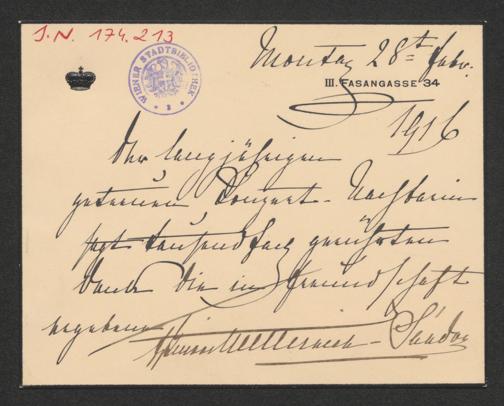 J.N. 174.213
WIENER STADTBIBLIOTHEK
Montag 28t Febr.
III. FASANGASSE 34
1916
Der langjährigen
getreuen Conzert-Nachbarin
sagt tausendfach gerührten
Dank die in Freundschaft
ergebene
Metternich-Sándor